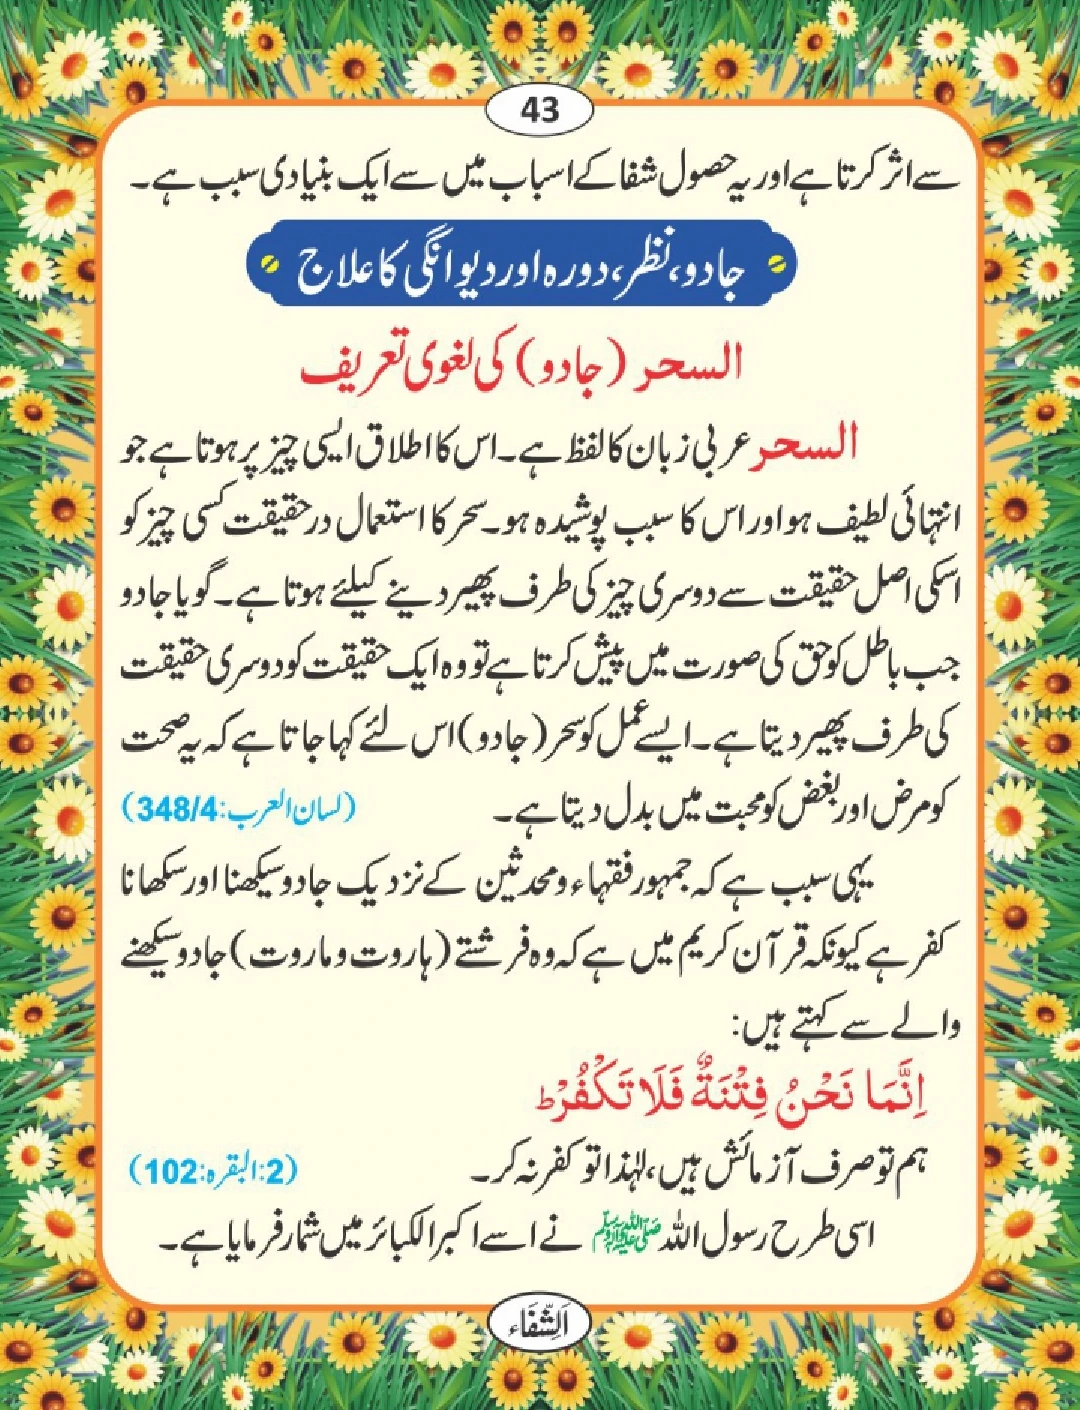 43
سے اثر کرتا ہے اور یہ حصول شفا کے اسباب میں سے ایک بنیادی سبب ہے۔
جادو، نظر، دورہ اور دیوانگی کا علاج
السحر (جادو) کی لغوی تعریف
السحر عربی زبان کا لفظ ہے۔ اس کا اطلاق ایسی چیز پر ہوتا ہے جو
انتہائی لطیف ہو اور اس کا سبب پوشیدہ ہو۔ سحر کا استعمال درحقیقت کسی چیز کو
اسکی اصل حقیقت سے دوسری چیز کی طرف پھیر دینے کیلئے ہوتا ہے۔ گویا جادو
جب باطل کو حق کی صورت میں پیش کرتا ہے تو وہ ایک حقیقت کو دوسری حقیقت
کی طرف پھیر دیتا ہے۔ ایسے عمل کو سحر (جادو) اس لئے کہا جاتا ہے کہ یہ صحت
کو مرض اور بغض کو محبت میں بدل دیتا ہے۔ (لسان العرب: 348/4)
یہی سبب ہے کہ جمہور فقہاء و محدثین کے نزدیک جادو سیکھنا اور سکھانا
کفر ہے کیونکہ قرآن کریم میں ہے کہ وہ فرشتے (ہاروت و ماروت) جادو سیکھنے
والے سے کہتے ہیں:
اِنَّمَا نَحْنُ فِتْنَةٌ فَلَا تَكْفُرْ ؕ
ہم تو صرف آزمائش ہیں، لہٰذا تو کفر نہ کر۔ (2: البقرہ: 102)
اسی طرح رسول اللہ ﷺ نے اسے اکبر الکبائر میں شمار فرمایا ہے۔
اَلشِّفَاء